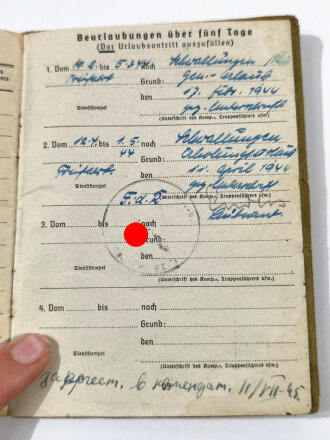 Beurlaubungen über fünf Tage
(Vor Urlaubsantritt auszufüllen)
1. Vom 10.2. bis 5.3.44 nach Schwallungen
Grund: Gen.-Urlaub
den 17. Febr. 1944
Dienststempel
(Unterschrift des Komp.-, Truppenführers usw.)
2. Vom 12.4. bis 1.5. 44 nach Schwallungen
Grund:
den 11. April 1944
Dienststempel
(Unterschrift des Komp.-, Truppenführers usw.)
F.d.R. Leutnant
3. Vom bis nach
Grund:
den
Dienststempel
(Unterschrift des Komp.-, Truppenführers usw.)
4. Vom bis nach
Grund:
den
Dienststempel
(Unterschrift des Komp.-, Truppenführers usw.)
23
в комендат. 11/VII-45.